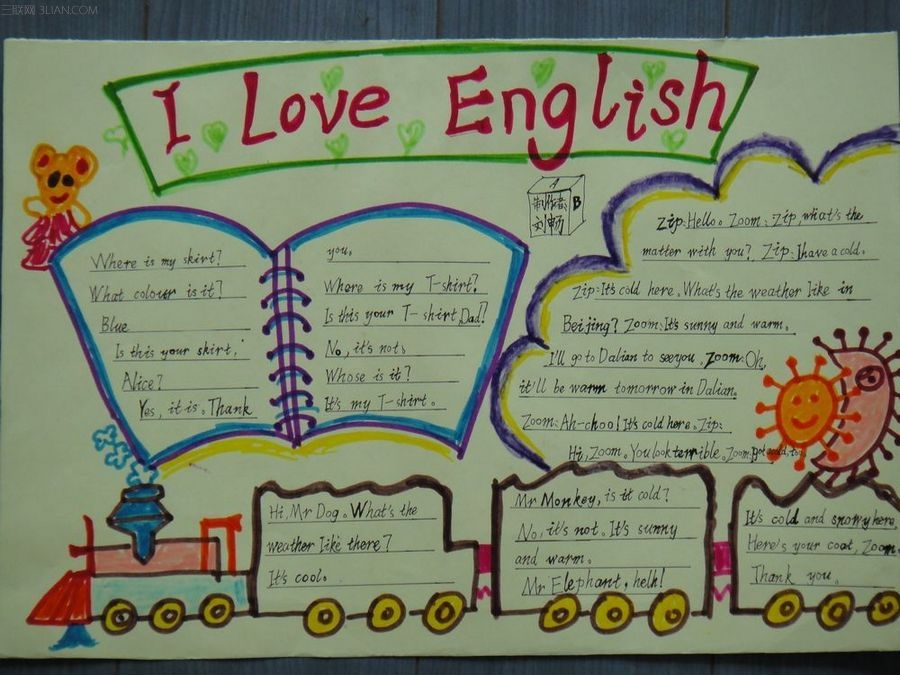 三联网 3LIAN.COM
I Love English
A
制作者:
B
刘畅
Where is my skirt?
What colour is it?
Blue
Is this your skirt,
Alice?
Yes, it is. Thank
you.
Where is my T-shirt?
Is this your T-shirt, Dad?
No, it's not.
Whose is it?
It's my T-shirt.
Zip:Hello. Zoom: Zip, what's the
matter with you? Zip: I have a cold.
Zip:It's cold here. What's the weather like in
Beijing? Zoom: It's sunny and warm.
I'll go to Dalian to see you. Zoom: Oh,
it'll be warm tomorrow in Dalian.
Zoom: Ah-choo! It's cold here. Zip:
Hi, Zoom. You look terrible. Zoom: cold, too.
Hi, Mr Dog. What's the
weather like there?
It's cool.
Mr Monkey, is it cold?
No, it's not. It's sunny
and warm.
Mr Elephant, helh!
It's cold and snowy here,
Here's your coat, Zoom.
Thank you.